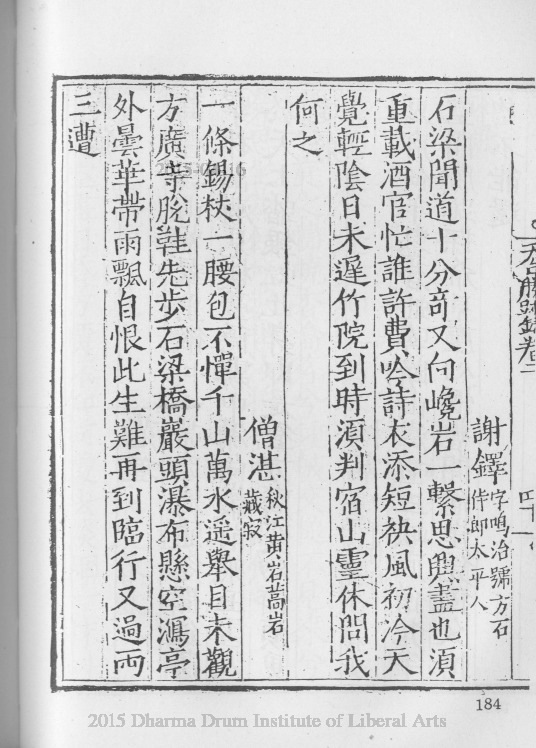 天台勝蹟録卷二
四十
謝鐸 字鳴治號方石
侍郎太平人
石梁聞道十分竒又向巉岩一繫思興盡也湏
重載酒官忙誰許費吟詩衣添短袂風初冷天
覺輕陰日未遲竹院到時湏判宿山靈休問我
何之
僧湛 秋江黄岩蒿岩
藏寂
一條錫杖一腰包不憚千山萬水遥舉目未觀
方廣寺脫鞋先步石梁橋巖頭瀑布懸空瀉亭
外曇華帶雨飄自恨此生難再到臨行又過兩
三遭
184
2015 Dharma Drum Institute of Liberal Arts